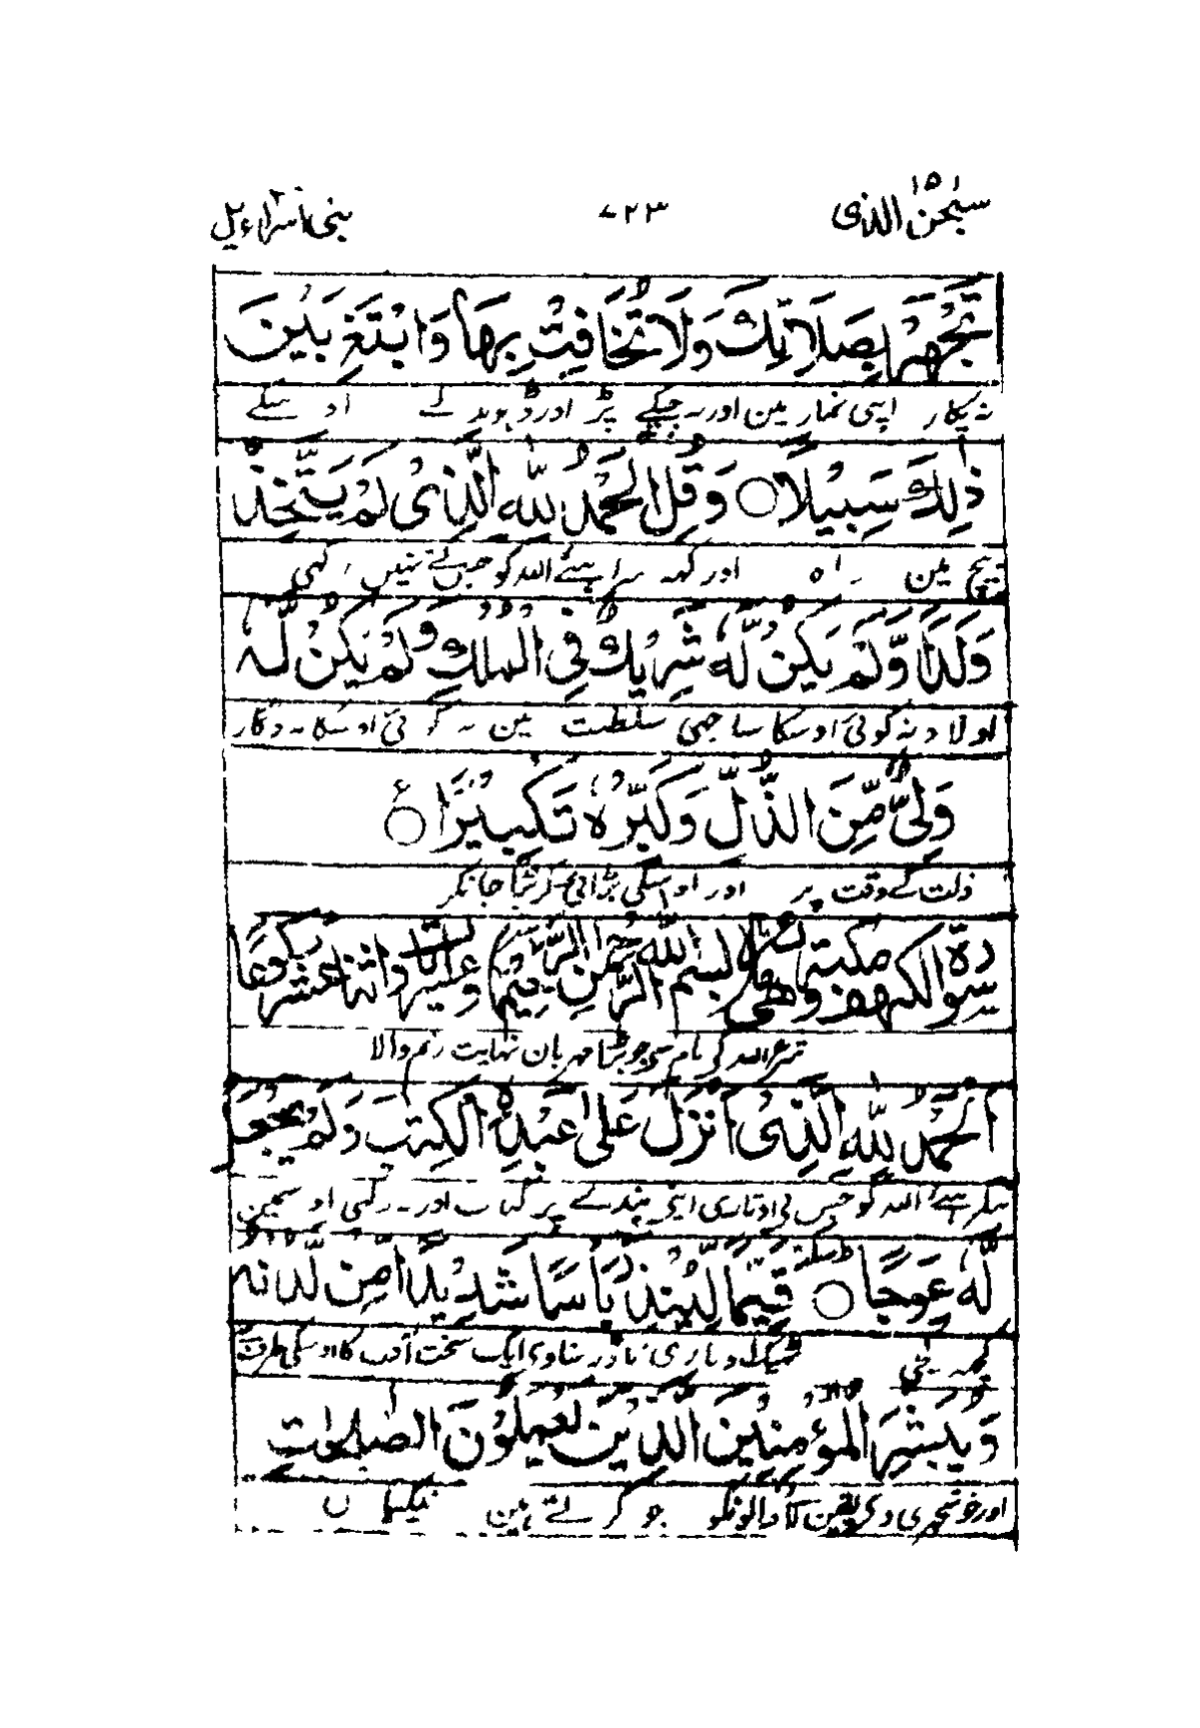 سبحٰن الذی ۱۵ ۷۲۳ بنی اسراءیل
تَجْهَرْ بِصَلَاتِكَ وَلَا تُخَافِتْ بِهَا وَابْتَغِ بَيْنَ
نہ پکار اپنی نماز مین اور نہ چپکے پڑ اور ڈہونڈ لے اوسکے
ذٰلِكَ سَبِيْلًا ○ وَقُلِ الْحَمْدُ لِلّٰهِ الَّذِىْ لَمْ يَتَّخِذْ
بیچ مین راہ اور کہہ سراہئے اللہ کو جس نے نہین رکہی
وَلَدًا وَّلَمْ يَكُنْ لَّهٗ شَرِيْكٌ فِى الْمُلْكِ وَلَمْ يَكُنْ لَّهٗ
اولاد نہ کوئی اوسکا ساجھی سلطنت مین نہ کوئی اوسکا مددگار
وَلِىٌّ مِّنَ الذُّلِّ وَكَبِّرْهُ تَكْبِيْرًا ○ ع
ذلت کے وقت پر اور اوسکی بڑائی کر بڑا جانکر
سورة الكهف مكية وهى بسم الله الرحمن الرحيم واثنا عشر ركوعا
شرع اللہ کی نام سی جو بڑا مہربان نہایت رحم والا
اَلْحَمْدُ لِلّٰهِ الَّذِىْ اَنْزَلَ عَلٰى عَبْدِهِ الْكِتٰبَ وَلَمْ يَجْعَلْ
اللہ کو جس نی اوتاری اپنے بندے پر کتاب اور نہ رکہی اوسمین
لَّهٗ عِوَجًا ○ سكتة قَيِّمًا لِّيُنْذِرَ بَاْسًا شَدِيْدًا مِّنْ لَّدُنْهُ
کچہہ کجی ٹھیک اوتاری تا ڈر سناوی ایک سخت آفت کا اوسکی طرف
وَيُبَشِّرَ الْمُؤْمِنِيْنَ الَّذِيْنَ يَعْمَلُوْنَ الصّٰلِحٰتِ
اور خوشخبری دی یقین لانیوالونکو جو کرتے ہین نیکیان